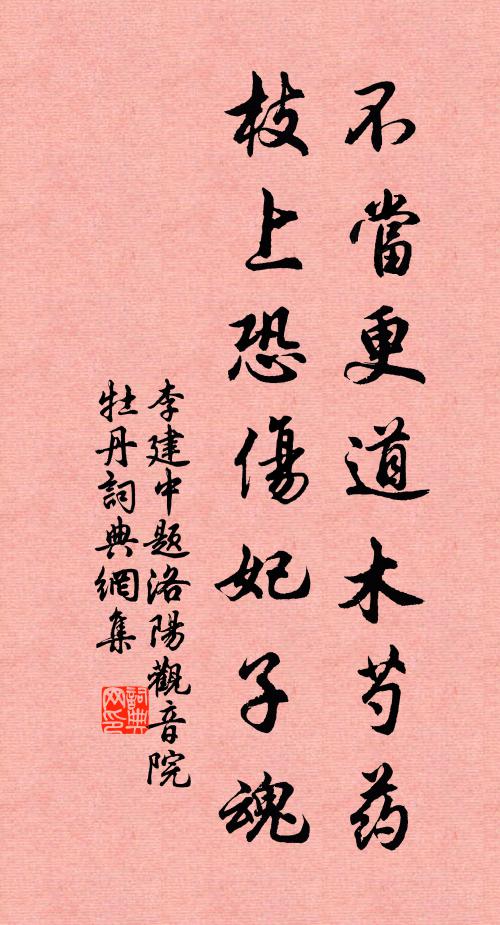 不當更道木芍药
枝上恐傷妃子魂
李建中題洛陽觀音院
牡丹詞典網集
詞典網印